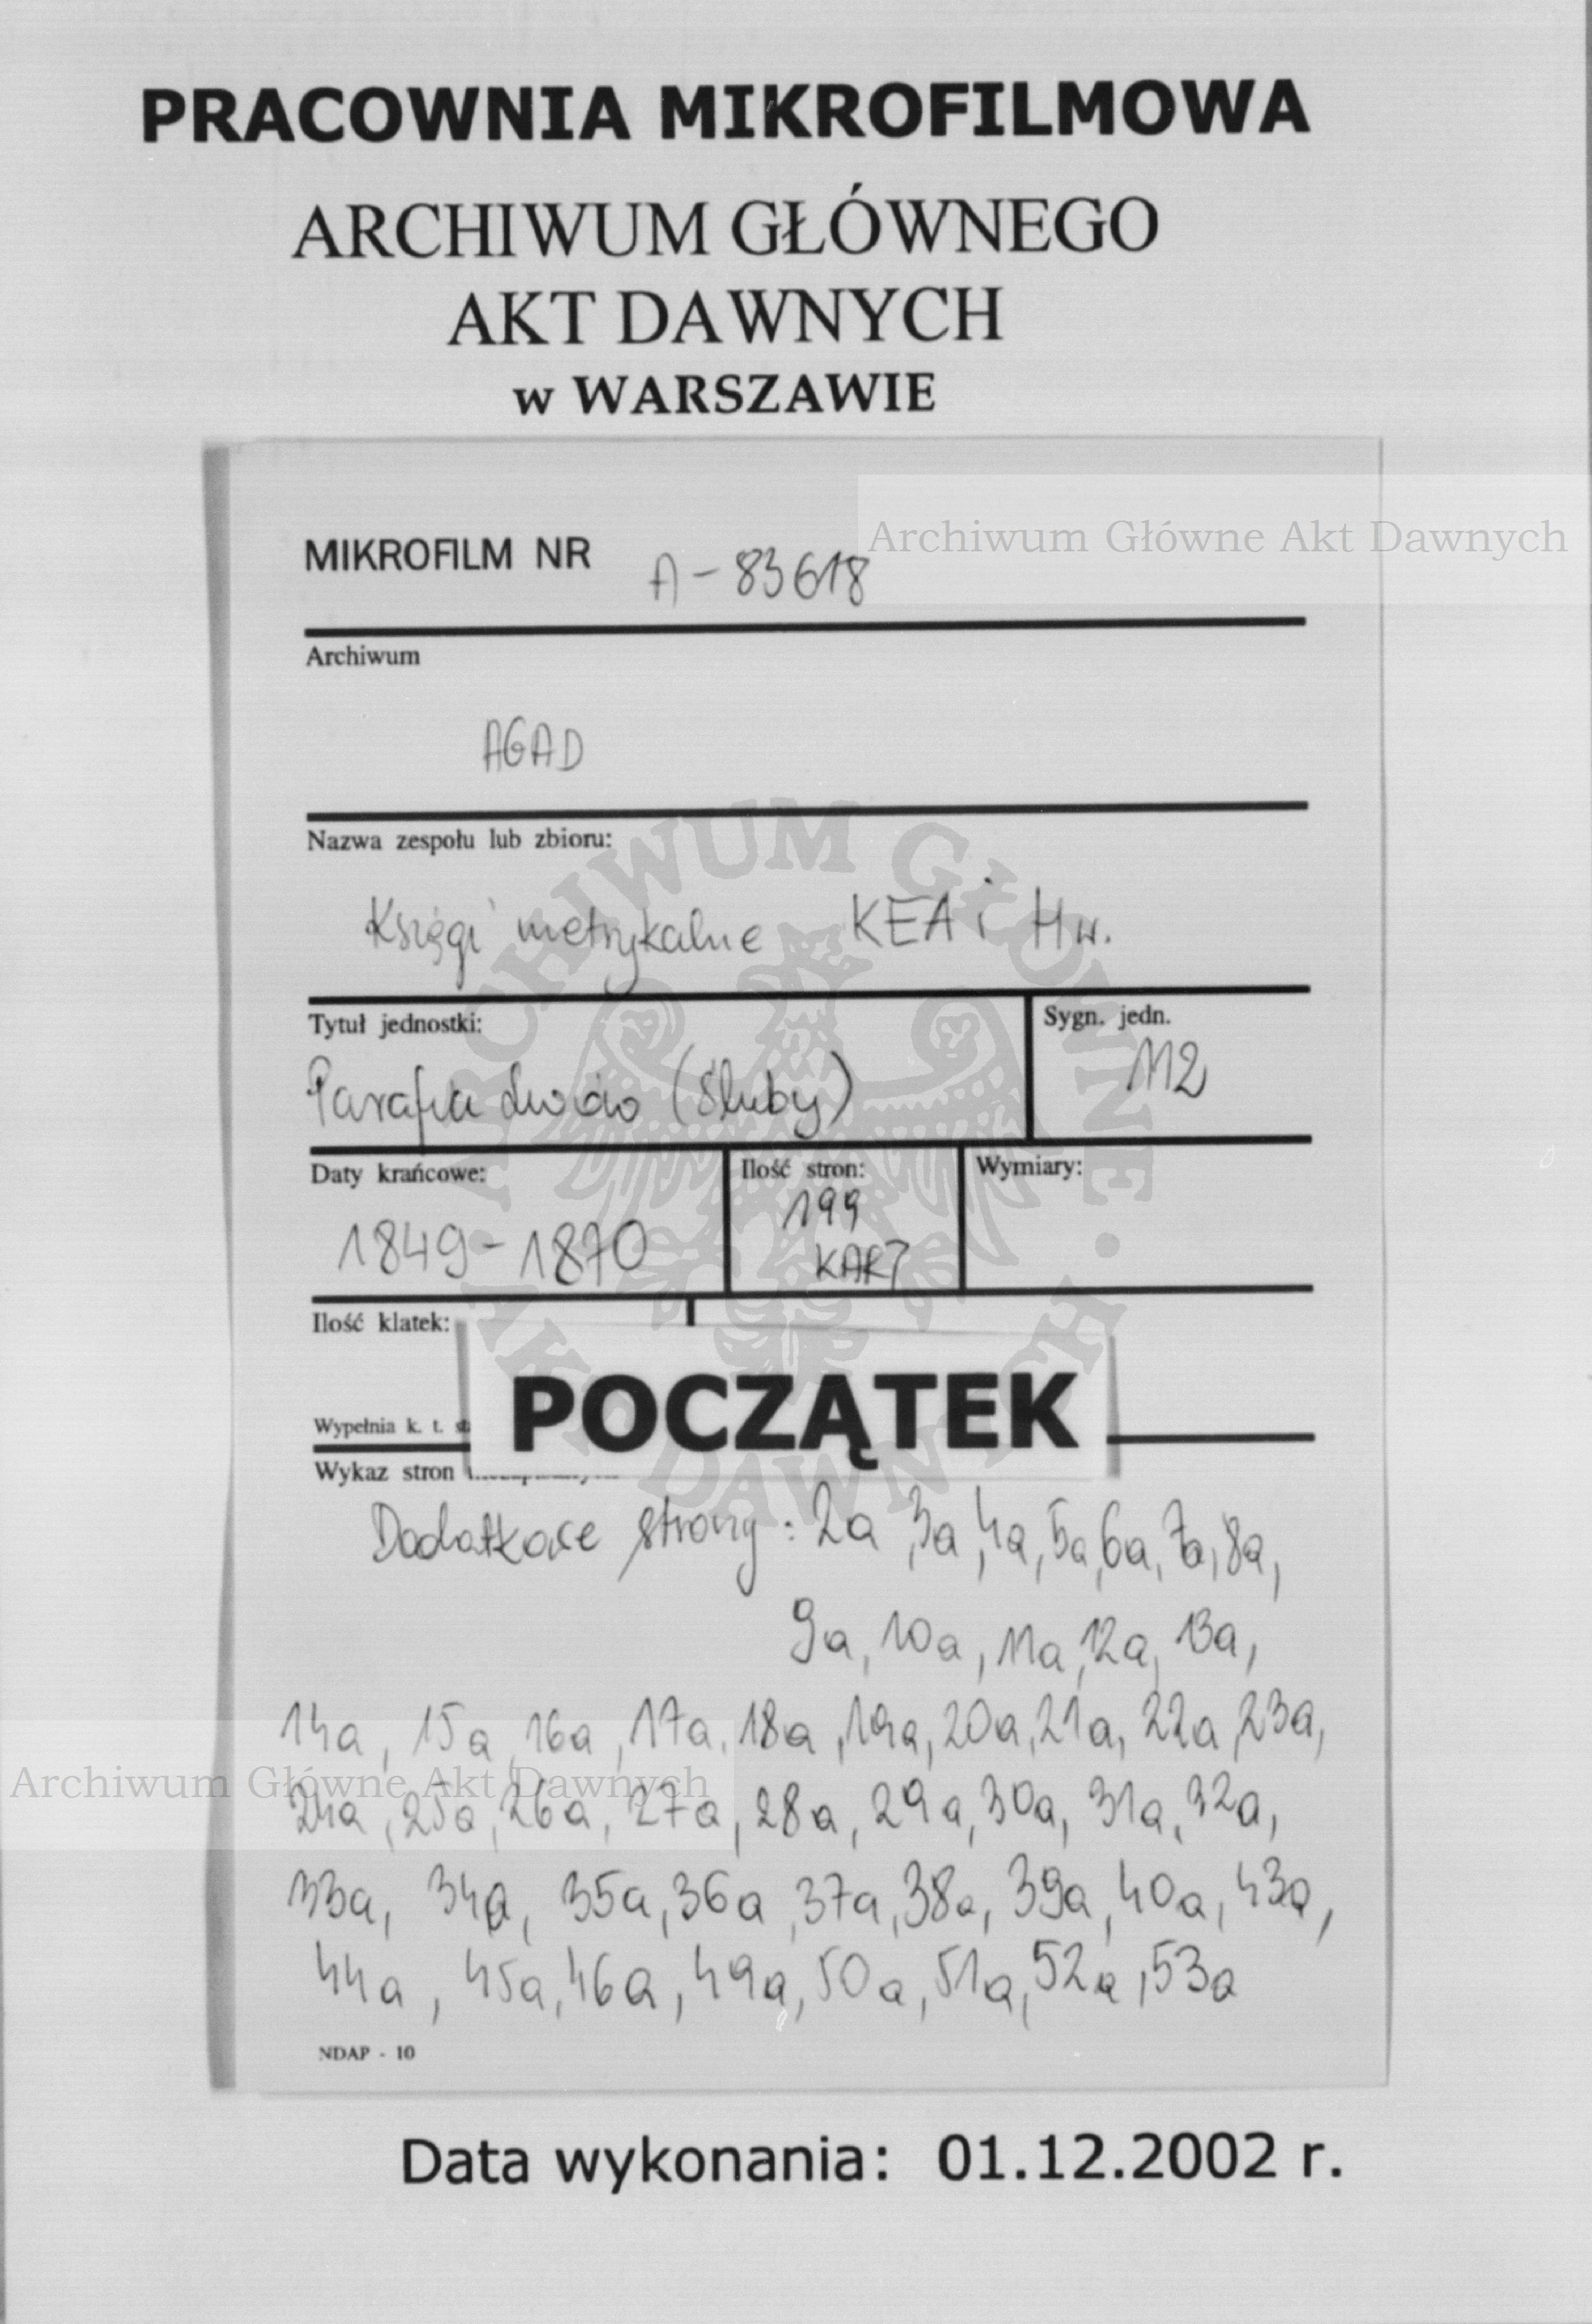 PRACOWNIA MIKROFILMOWA
ARCHIWUM GŁÓWNEGO
AKT DAWNYCH
w WARSZAWIE
Archiwum Główne Akt Dawnych
MIKROFILM NR A-83618
Archiwum
AGAD
Nazwa zespołu lub zbioru:
Księgi metrykalne KEA i Hw.
Tytuł jednostki:
Parafia Lwów (Śluby)
Sygn. jedn.
112
Daty krańcowe:
1849-1870
Ilość stron:
199
KART
Wymiary:
Ilość klatek:
POCZĄTEK
Wypełnia k. t.
Wykaz stron
Dodatkowe strony: 2a, 3a, 4a, 5a, 6a, 7a, 8a,
9a, 10a, 11a, 12a, 13a,
14a, 15a, 16a, 17a, 18a, 19a, 20a, 21a, 22a, 23a,
Archiwum Główne Akt Dawnych
24a, 25a, 26a, 27a, 28a, 29a, 30a, 31a, 32a,
33a, 34a, 35a, 36a, 37a, 38a, 39a, 40a, 43a,
44a, 45a, 46a, 49a, 50a, 51a, 52a, 53a
NDAP - 10
Data wykonania: 01.12.2002 r.
ARCHIWUM GŁÓWNE · AKT DAWNYCH ·